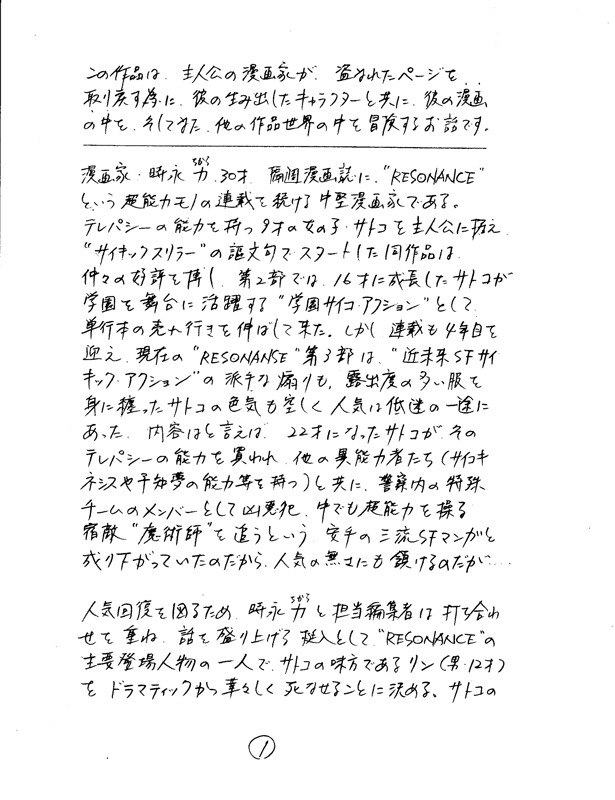 この作品は、主人公の漫画家が、盗まれたページを
取り戻す為に、彼の生み出したキャラクターと共に、彼の漫画
の中を、そしてまた、他の作品世界の中を冒険するお話です。
漫画家・時永 力、30才、隔週漫画誌に、"RESONANCE"
という超能力モノの連載を続ける中堅漫画家である。
テレパシーの能力を持つ9才の女の子・サトコを主人公に据え、
"サイキックスリラー"の謳文句でスタートした同作品は、
仲々の好評を博し、第2部では、16才に成長したサトコが
学園を舞台に活躍する"学園サイコ・アクション"として、
単行本の売れ行きを伸ばして来た。しかし、連載も4年目を
迎え、現在の"RESONANSE"第3部は、"近未来SFサイ
キック・アクション"の派手な煽りも、露出度の多い服を
身に纏ったサトコの色気も空しく人気は低迷の一途に
あった。内容はと言えば、22才になったサトコが、その
テレパシーの能力を買われ、他の異能力者たち(サイコキ
ネシスや予知夢の能力等を持つ)と共に、警察内の特殊
チームのメンバーとして凶悪犯、中でも超能力を操る
宿敵"魔術師"を追うという、安手の三流SFマンガへと
成り下がっていたのだから、人気の無さにも頷けるのだが…
人気回復を図るため、時永 力と担当編集者は打ち合わ
せを重ね、話を盛り上げる挺入として、"RESONANCE"の
主要登場人物の一人で、サトコの味方であるリン(男・12才)
を、ドラマティックかつ華々しく死なせることに決める。サトコの
1